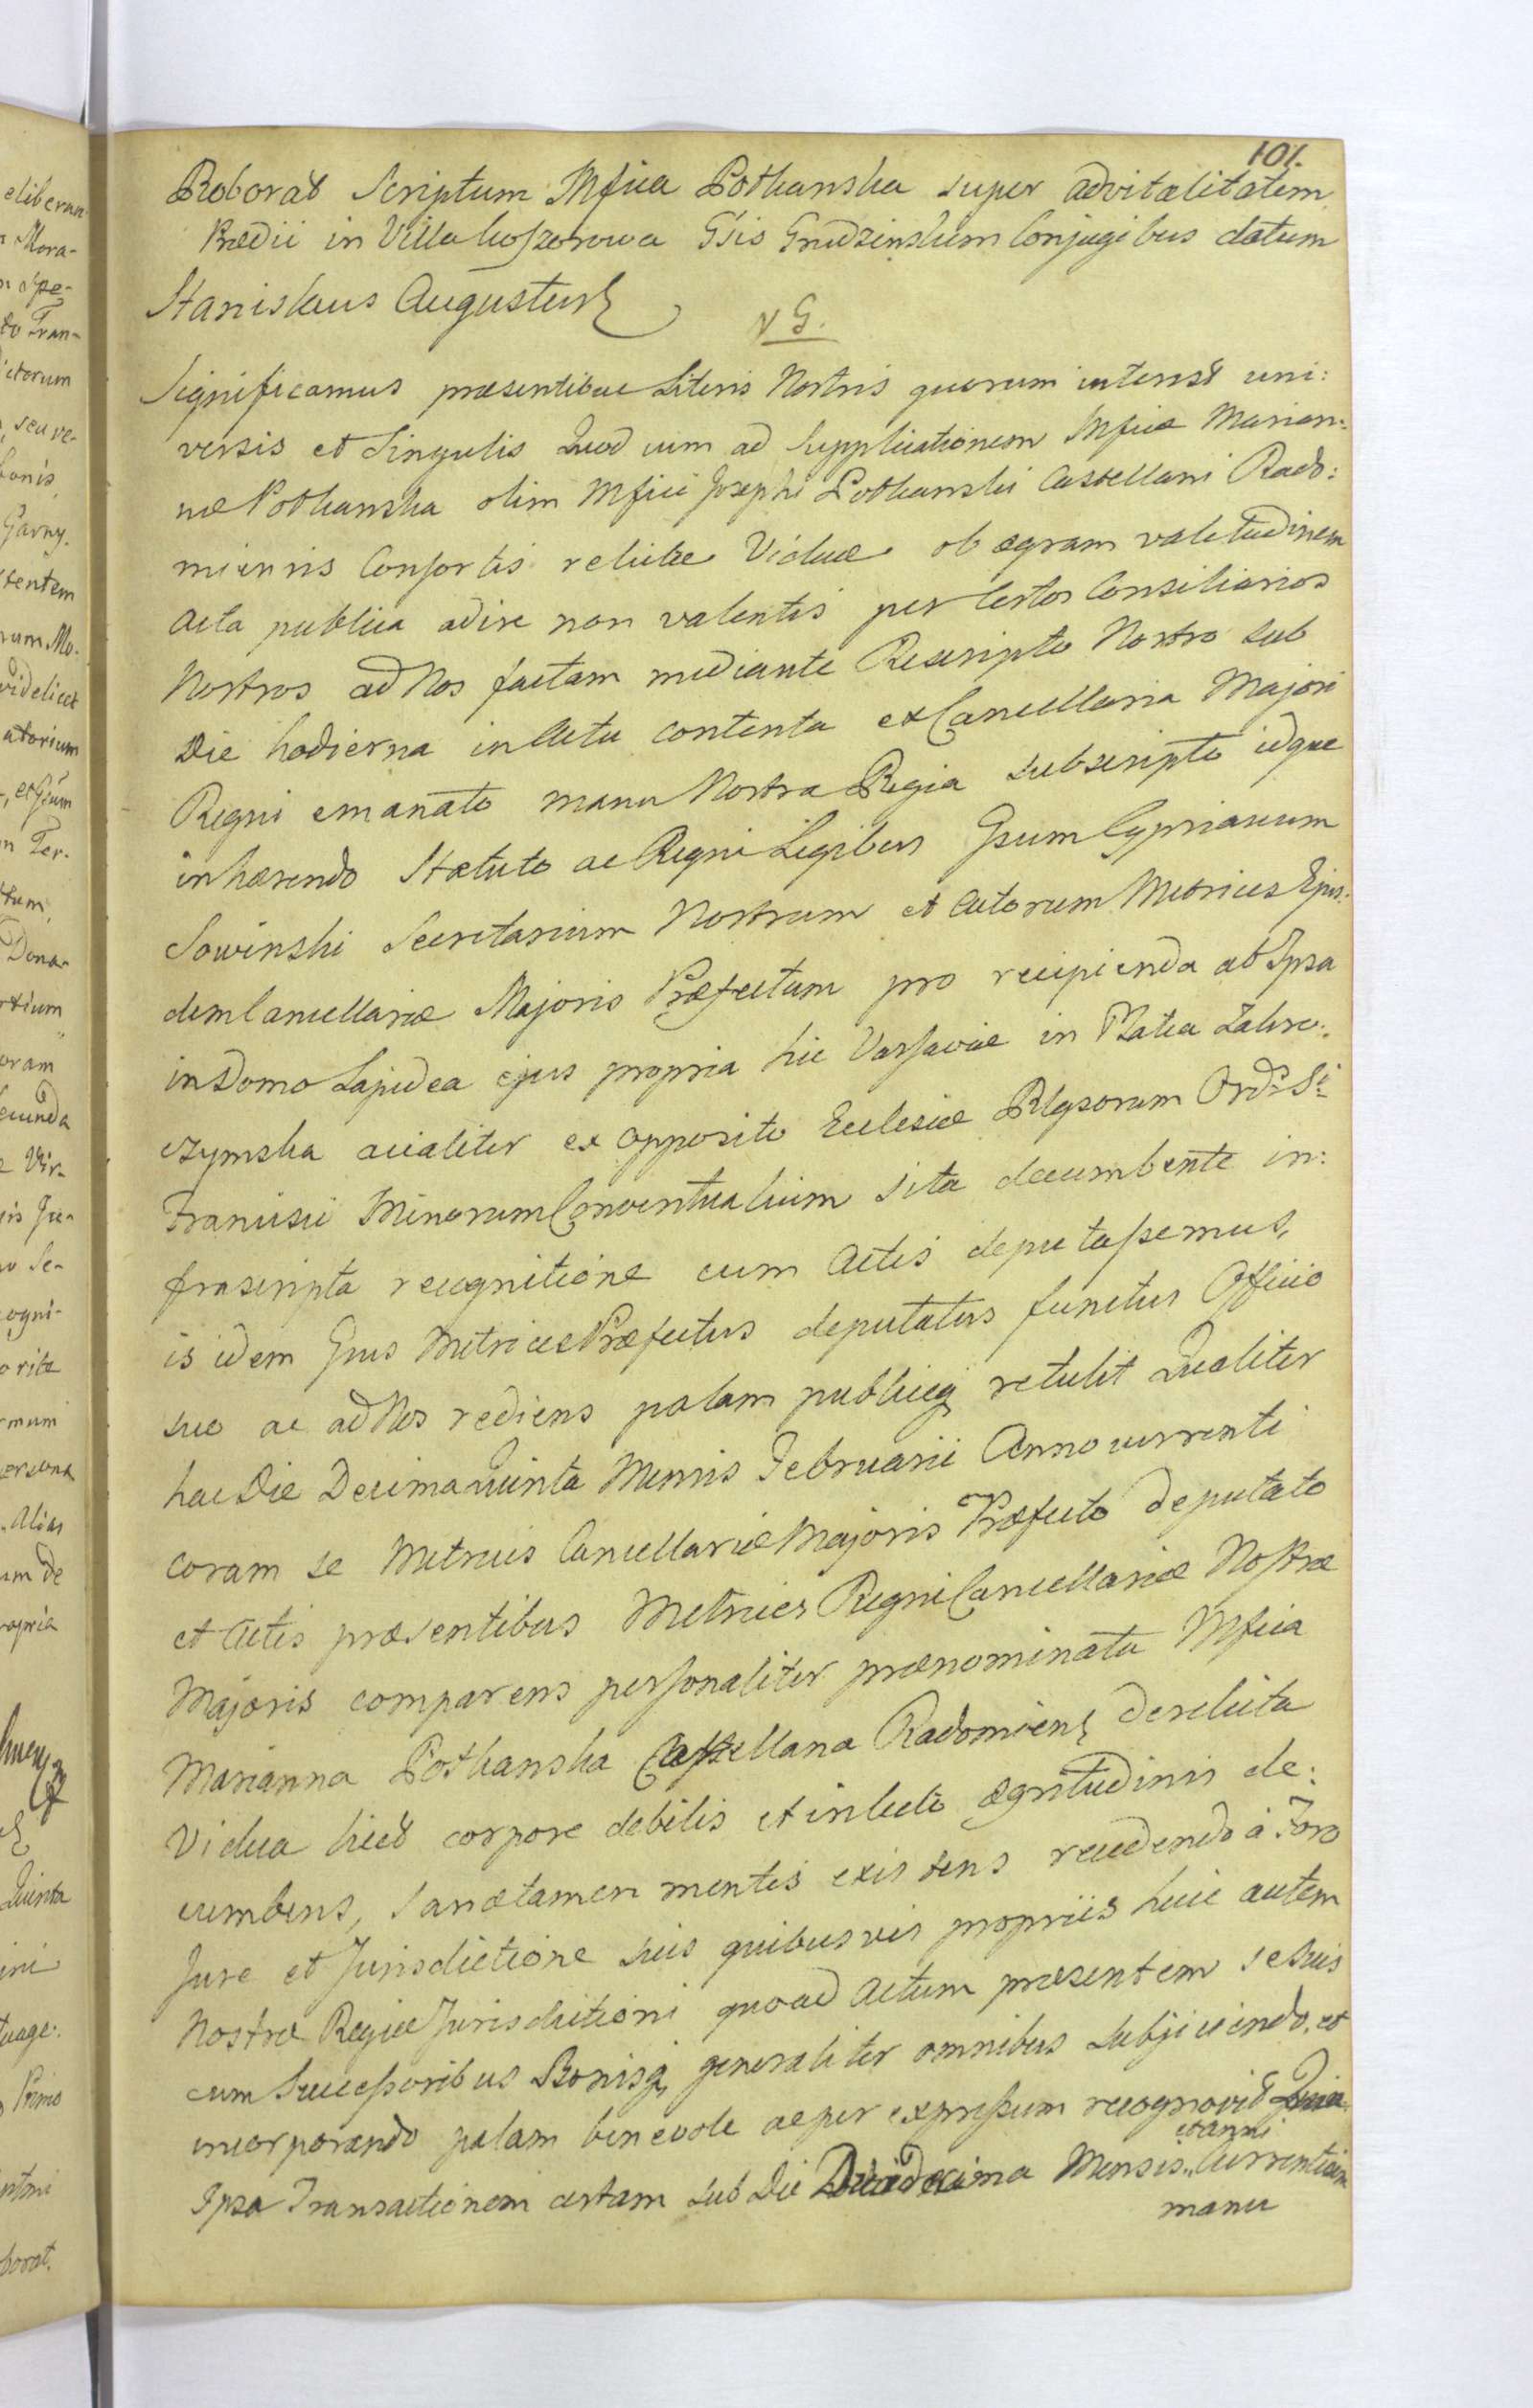 101.
Roborat Scriptum Mfica Potkanska super advitalitatem
Prædii in Villa Koszorowa Gsis Grudzinskim Conjugibus datum
Stanislaus Augustus
V G.
Significamus præsentibus Literis Nostris quorum interest uni:
versis et Singulis Quod cum ad Supplicationem Mficæ Marian:
næ Potkanska olim Mfici Josephi Potkanski Castellani Rado:
miensis Consortis relictæ Viduæ ob ægram valetudinem
Acta publica adire non valentis per Certos Consiliarios
Nostros ad Nos factam mediante Rescripto Nostro sub
Die hodierna in Actu contenta ex Cancellaria Majori
Regni emanato manu Nostra Regia subscripto idque
inhærendo Statuto ac Regni Legibus Gsum Cyprianum
Sowinski Secretarium Nostrum et Actorum Metrices Ejus:
dem Cancellariæ Majoris Præfectum pro recipienda ab Ipsa
in Domo Lapidea ejus propria hic Varsaviæ in Platea Zakro:
czymska acialiter ex opposito Ecclesiæ Rlgsorum Ord: S:i
Francisci Minorum Conventualium sita decumbente in:
frascripta recognitione cum Actis deputassemus,
is idem Gsus Metrices Præfectus deputatus functus Officio
suo ac ad Nos rediens palam publiceq retulit Qualiter
hac Die Decima quinta Mensis Februarii Anno currenti
coram se Metrices Cancellariæ Majoris Præfecto deputato
et Actis præsentibus Metrices Regni Cancellariæ Nostræ
Majoris comparens personaliter prænominata Mfica
Marianna Potkanska Castellana Radomiens derelicta
Vidua licet corpore debilis et in lecto ægritudinis de:
cumbens, sanæ tamen mentis existens recedendo à Foro
Jure et Jurisdictione suis quibusvis propriis huic autem
Nostræ Regiæ Jurisdictioni quoad Actum præsentem se suis
cum Successoribus Bonisq generaliter omnibus subjiciendo, et
incorporando palam benevole ac per expressum recognovit Quia
et anni
Ipsa Transactionem certam sub Die Duodecima Mensis Currentium
manu